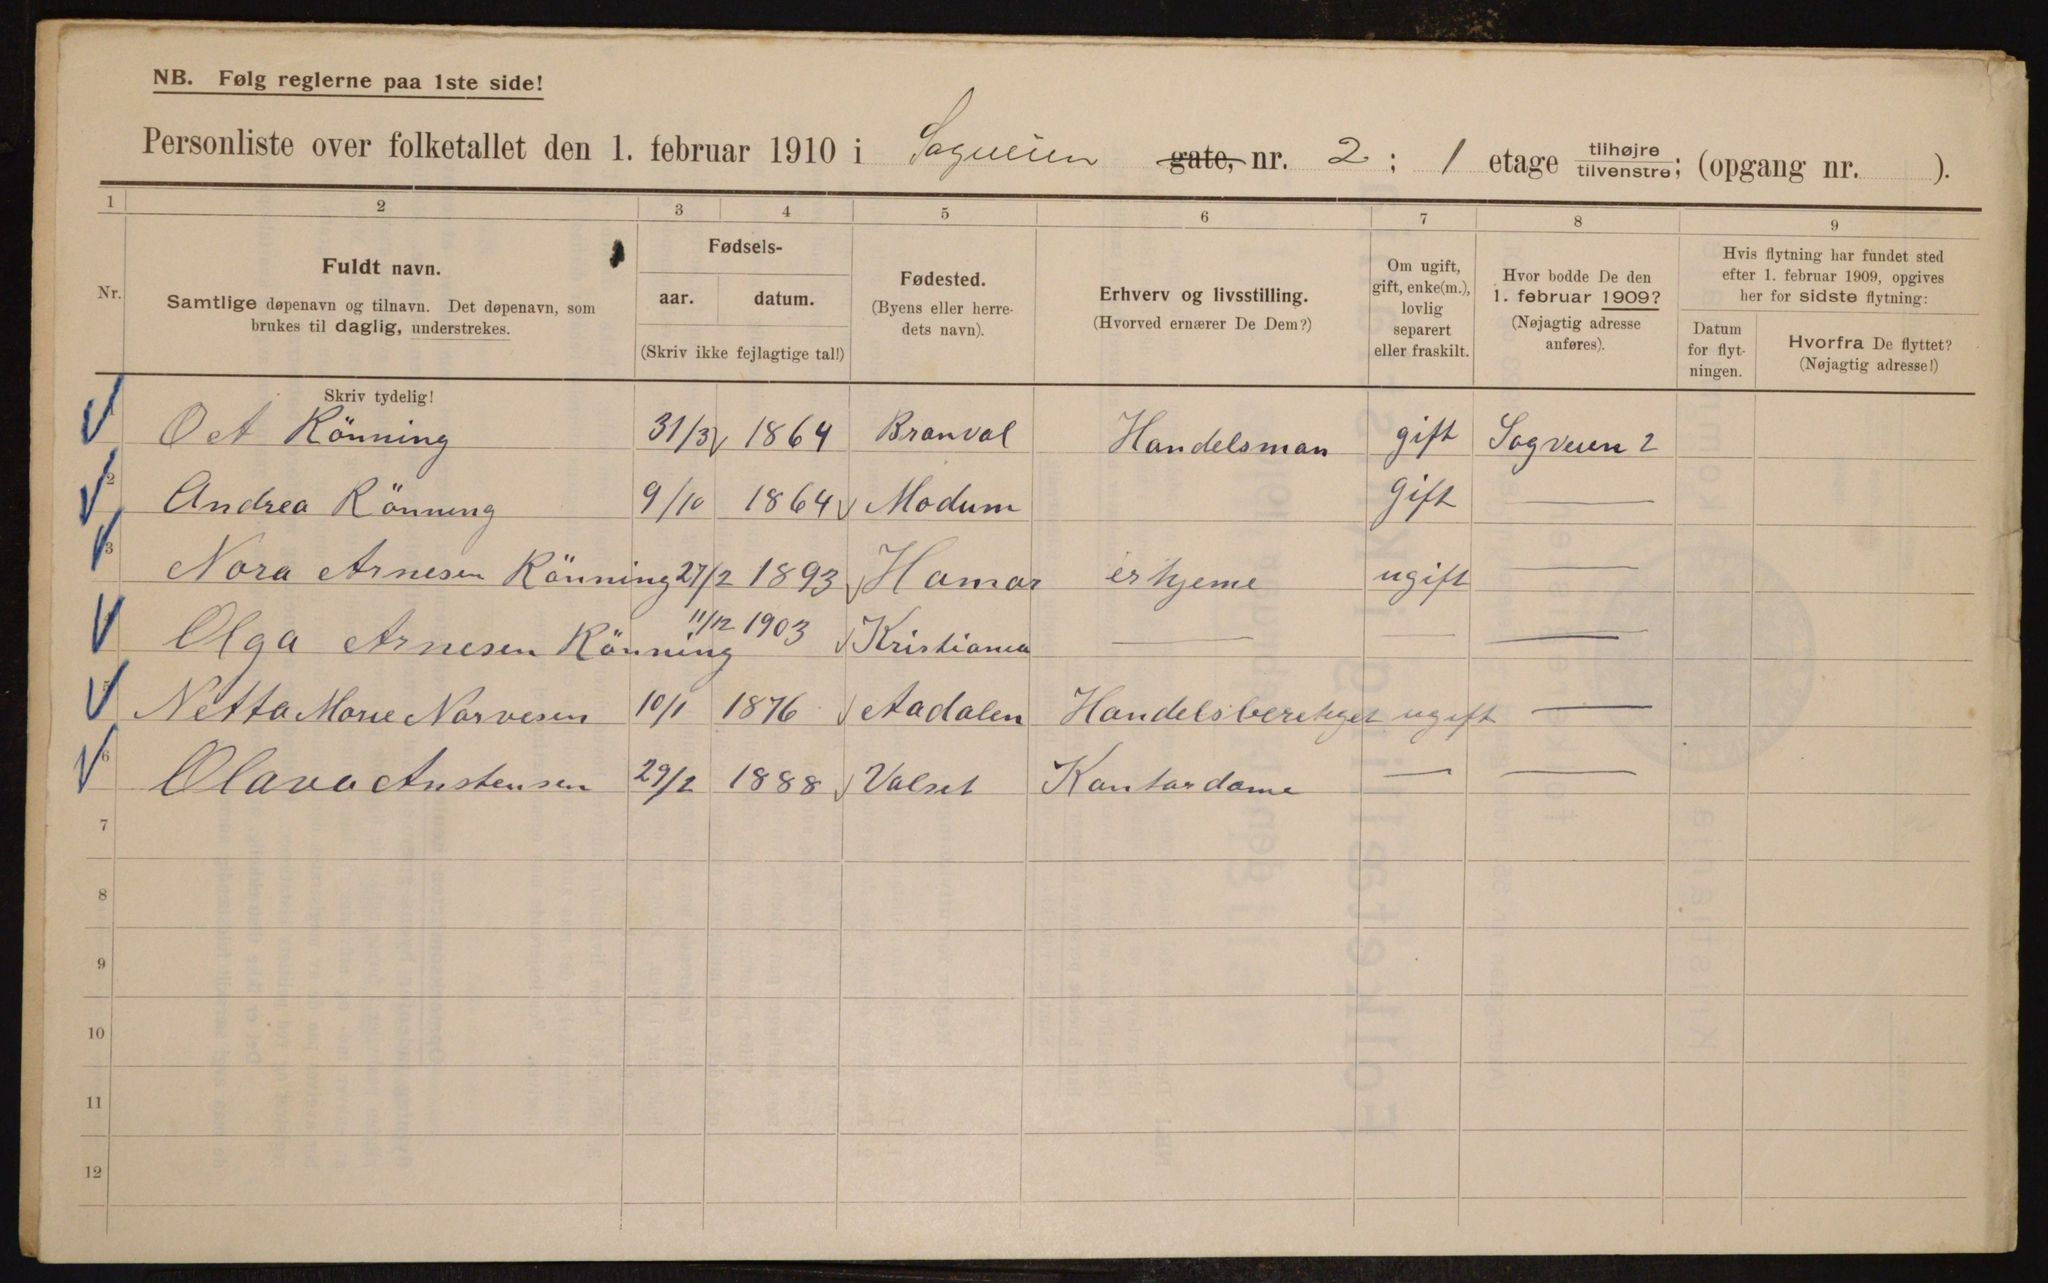 NB. Følg reglerne paa 1ste side!
Personliste over folketallet den 1. februar 1910 i Sagveien gate, nr. 2; 1 etage tilhøjre tilvenstre; (opgang nr. ).
1 2 3 4 5 6 7 8 9
Nr.
Fuldt navn.
Samtlige døpenavn og tilnavn. Det døpenavn, som
brukes til daglig, understrekes.
Skriv tydelig!
Fødsels-
aar. datum.
(Skriv ikke fejlagtige tal!)
Fødested.
(Byens eller herre-
dets navn).
Erhverv og livsstilling.
(Hvorved ernærer De Dem?)
Om ugift,
gift, enke(m.),
lovlig
separert
eller fraskilt.
Hvor bodde De den
1. februar 1909?
(Nøjagtig adresse
anføres).
Hvis flytning har fundet sted
efter 1. februar 1909, opgives
her for sidste flytning:
Datum
for flyt-
ningen.
Hvorfra De flyttet?
(Nøjagtig adresse!)
1 O et A Rönning 31/3 1864 Branval Handelsman gift Sagveien 2
2 Andrea Rönning 9/10 1864 Modum gift
3 Nora Arnesen Rönning 27/2 1893 Hamar er hjeme ugift
Olga Arnesen Rönning 11/12 1903 Kristiania
5 Netta Marie Narvesen 10/1 1876 Aadalen Handelsberetiget ugift
6 Olava Anstensen 29/2 1888 Valset Kontordame
7
8
9
10
11
12